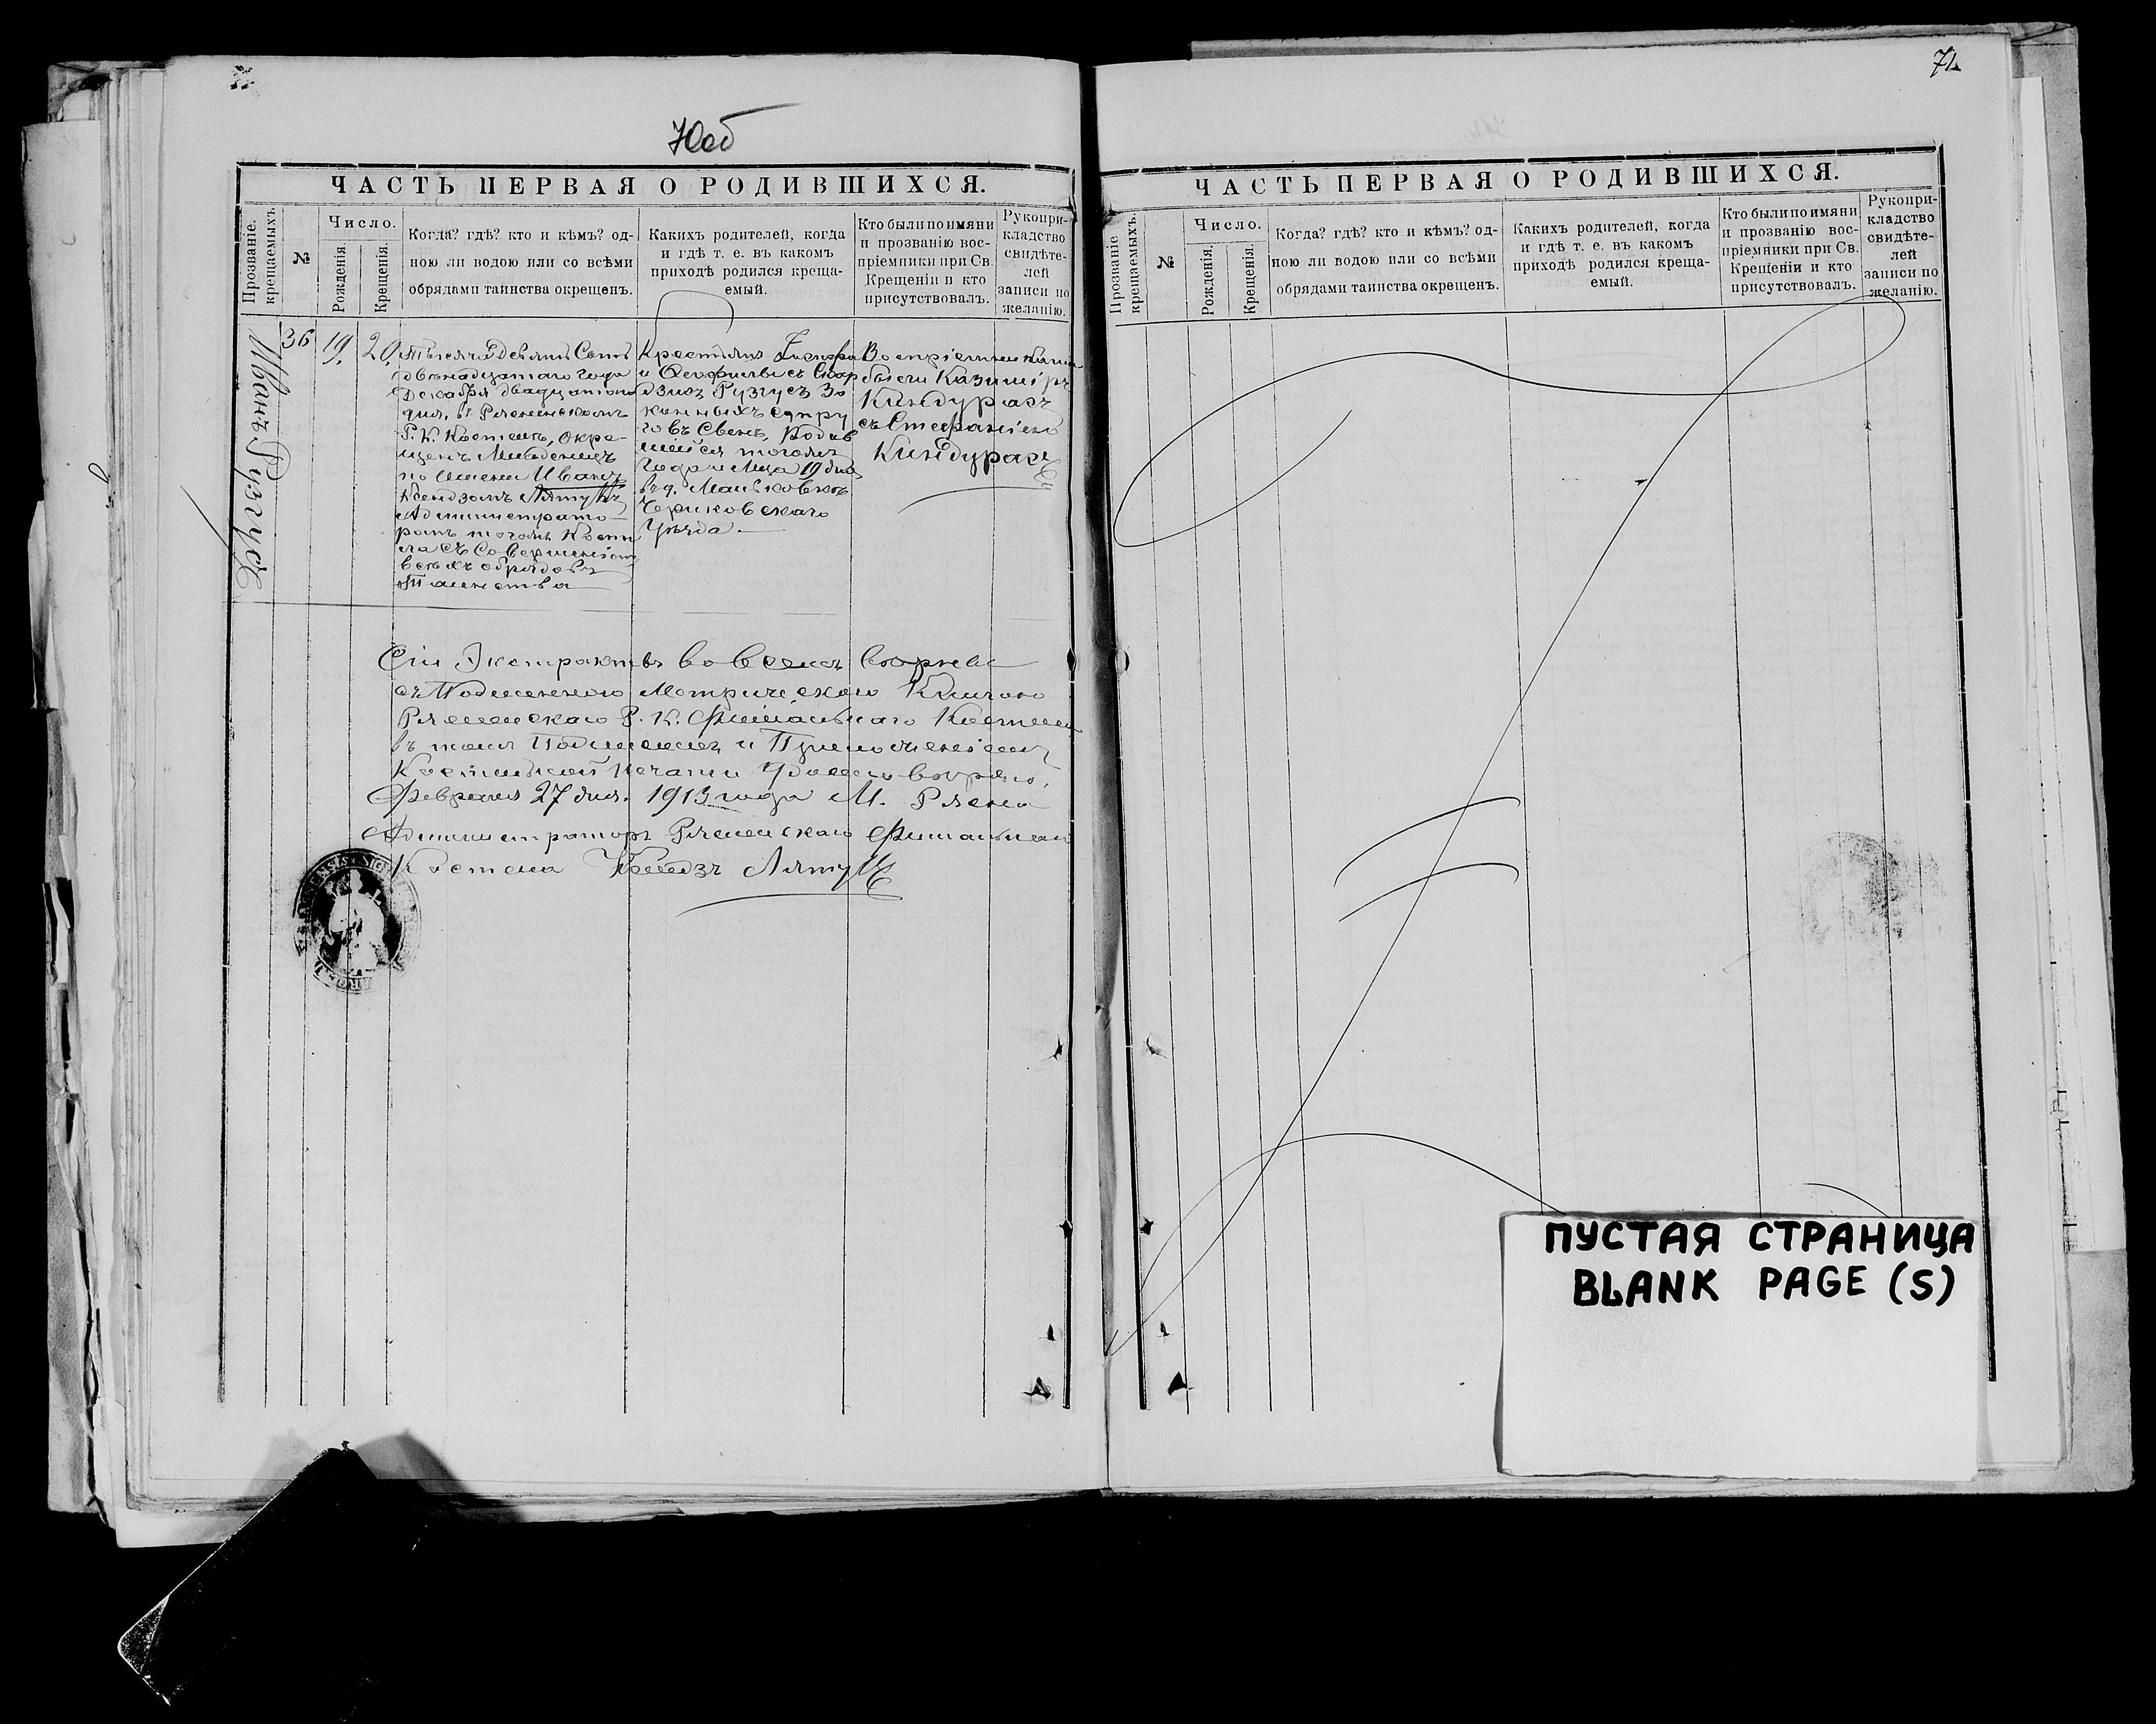 70об
ЧАСТЬ ПЕРВАЯ О РОДИВШИХСЯ.
Прозваніе крещаемыхъ.
№
Число.
Рожденія.
Крещенія.
Когда? гдѣ? кто и кѣмъ? од-
ною ли водою или со всѣми
обрядами таинства окрещенъ.
Какихъ родителей, когда
и гдѣ т. е. въ какомъ
приходѣ родился креща-
емый.
Кто были по имяни
и прозванію вос-
пріемники при Св.
Крещеніи и кто
присутствовалъ.
Рукопри-
кладство
свидѣте-
лей
записи по
желанію.
Иванъ Рузгусъ
36
19.
20.
Тысяча Девятьсотъ
двѣнадцатаго года
Декабря двадцатаго
дня, въ Рясненскомъ
Р. К. Костелѣ, Окре-
щенъ Младенецъ
по имени Иванъ
Ксендзомъ
Администрато-
ромъ тогожъ Косте
ла съ Совершеніемъ
всѣхъ обрядовъ
Таинства
Крестьянъ
и Феофиліи съ
Рузгусъ За
конныхъ супру
говъ Сынъ, Родив
шійся тогожъ
Года и М-ца 19 дня
въ д.
Чериковскаго
Уѣзда.
Воспріемниками
были Казиміръ
Киндурасъ
съ Стефаніею
Киндурасъ
Сіи Экстракты во всемъ вѣрны
съ Подлинною Метрическою Книгою
Рясненскаго Р. К. Филіальнаго Костела
въ томъ Подписомъ и Приложеніемъ
Костельной печати Удостовѣряю.
Февраля 27 дня. 1913 года М. Рясна
Администраторъ Рясненскаго Филіальнаго
Костела Ксендзъ
71
ЧАСТЬ ПЕРВАЯ О РОДИВШИХСЯ.
Прозваніе крещаемыхъ.
№
Число.
Рожденія.
Крещенія.
Когда? гдѣ? кто и кѣмъ? од-
ною ли водою или со всѣми
обрядами таинства окрещенъ.
Какихъ родителей, когда
и гдѣ т. е. въ какомъ
приходѣ родился креща-
емый.
Кто были по имяни
и прозванію вос-
пріемники при Св.
Крещеніи и кто
присутствовалъ.
Рукопри-
кладство
свидѣте-
лей
записи по
желанію.
ПУСТАЯ СТРАНИЦА
BLANK PAGE (S)